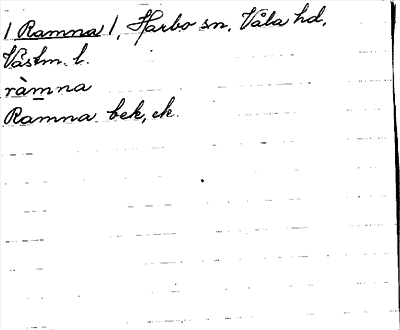 / Ramna /, Harbo sn. Våla hd.
Västm. l.
ràmna
Ramna bek, ek.